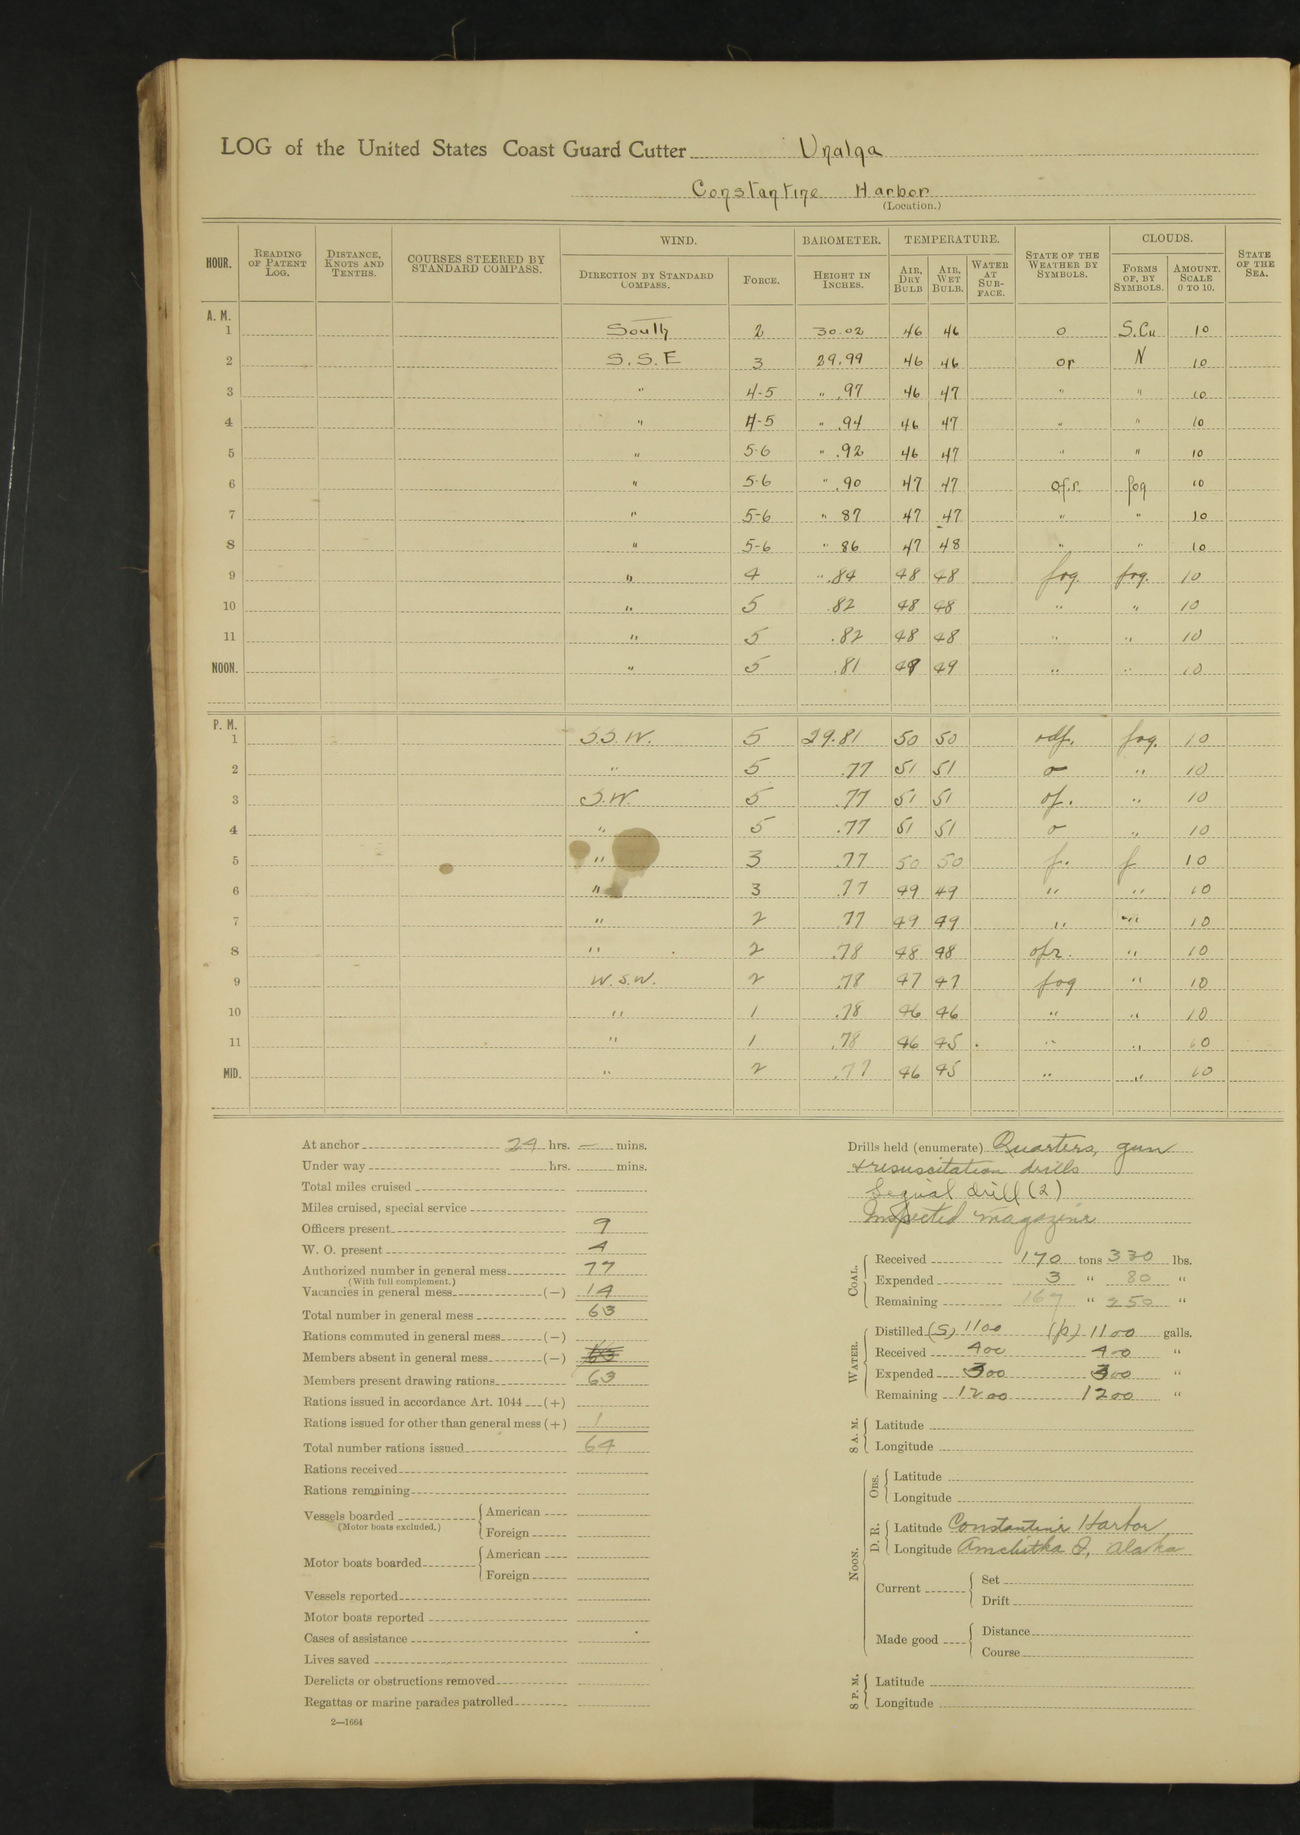 LOG of the United States Coast Guard Cutter Unalga
Constantine Harbor
(Location.)
HOUR. READING OF PATENT LOG. DISTANCE, KNOTS AND TENTHS. COURSES STEERED BY STANDARD COMPASS. WIND. BAROMETER. TEMPERATURE. STATE OF THE WEATHER BY SYMBOLS. CLOUDS. STATE OF THE SEA.
DIRECTION BY STANDARD COMPASS. FORCE. HEIGHT IN INCHES. AIR, DRY BULB AIR, WET BULB. WATER AT SURFACE. FORMS OF, BY SYMBOLS. AMOUNT. SCALE 0 TO 10.
A. M.
1 South 2 30.02 46 46 o S.Cu 10
2 S.S.E 3 29.99 46 46 or N 10
3 " 4-5 " .97 46 47 " " 10
4 " 4-5 " .94 46 47 " " 10
5 " 5-6 " .92 46 47 " " 10
6 " 5-6 " .90 47 47 o.f.r. fog 10
7 " 5-6 " 87 47 47 " " 10
8 " 5-6 " 86 47 48 " " 10
9 " 4 " .84 48 48 fog. fog. 10
10 " 5 .82 48 48 " " 10
11 " 5 .82 48 48 " " 10
NOON. " 5 .81 49 49 " " 10
P. M.
1 S.S.W. 5 29.81 50 50 odf. fog. 10
2 " 5 .77 51 51 o " 10
3 S.W. 5 .77 51 51 of. " 10
4 " 5 .77 51 51 o " 10
5 " 3 .77 50 50 f. f 10
6 " 3 .77 49 49 " " 10
7 " 2 77 49 49 " " 10
8 " 2 .78 48 48 ofr. " 10
9 W.S.W. 2 .78 47 47 fog " 10
10 " 1 .78 46 46 " " 10
11 " 1 .78 46 45 " " 10
MID. " 2 .77 46 45 " " 10
At anchor 24 hrs. — mins.
Under way hrs. mins.
Total miles cruised
Miles cruised, special service
Officers present 9
W. O. present 4
Authorized number in general mess 77
(With full complement.)
Vacancies in general mess (—) 14
Total number in general mess 63
Rations commuted in general mess (—)
Members absent in general mess (—)
Members present drawing rations 63
Rations issued in accordance Art. 1044 (+)
Rations issued for other than general mess (+) 1
Total number rations issued 64
Rations received
Rations remaining
Vessels boarded American
(Motor boats excluded.) Foreign
Motor boats boarded American
Foreign
Vessels reported
Motor boats reported
Cases of assistance
Lives saved
Derelicts or obstructions removed
Regattas or marine parades patrolled
2—1664
Drills held (enumerate) Quarters, gun
& resuscitation drills
drill (2)
Inspected magazine
COAL.
Received 170 tons 330 lbs.
Expended 3 " 80 "
Remaining 167 " 250 "
WATER.
Distilled (S) 1100 (p) 1100 galls.
Received 400 400 "
Expended 300 300 "
Remaining 1200 1200 "
8 A. M.
Latitude
Longitude
NOON.
OBS.
Latitude
Longitude
D. R.
Latitude Constantine Harbor
Longitude Amchitka I, Alaska
Current Set
Drift
Made good Distance
Course
8 P. M.
Latitude
Longitude